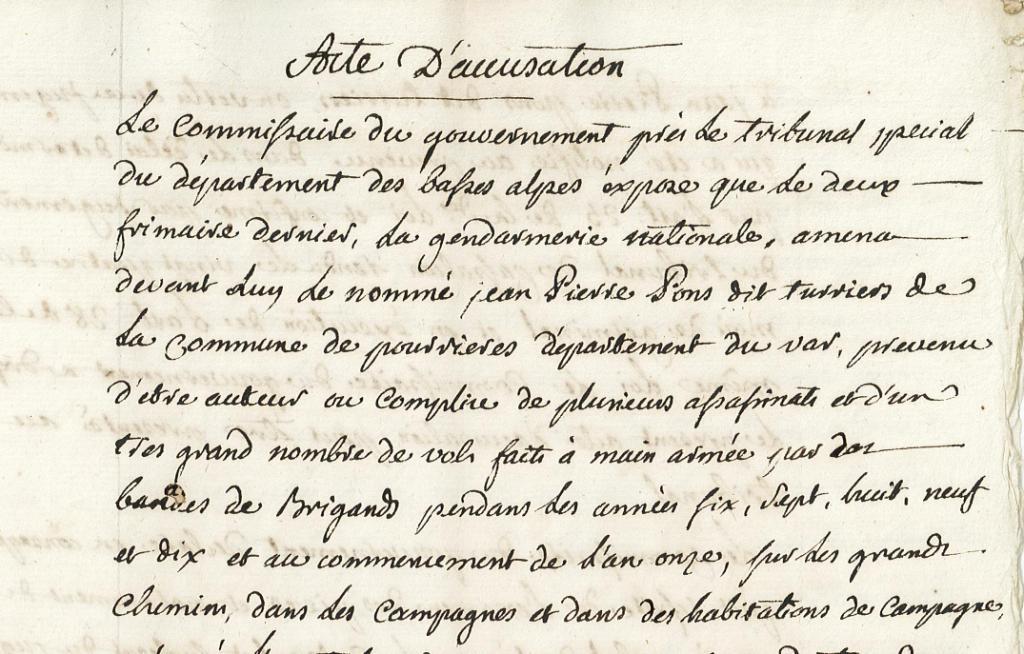 Acte D'accusation
Le Commissaire du gouvernement près le tribunal special
du département des basses alpes éxpose que le deux
frimaire dernier, la gendarmerie nationale, amena
devant Luy le nommé jean Pierre Pons dit turriers de
la commune de pourrieres département du var, prevenu
d'être auteur ou complice de plusieurs assasinats et d'un
tres grand nombre de vols faits à main armée par des
bandes de Brigands pendans les années six, sept, huit, neuf
et dix et au commencement de l'an onze, sur les grands
chemins, dans les campagnes et dans des habitations de campagne,